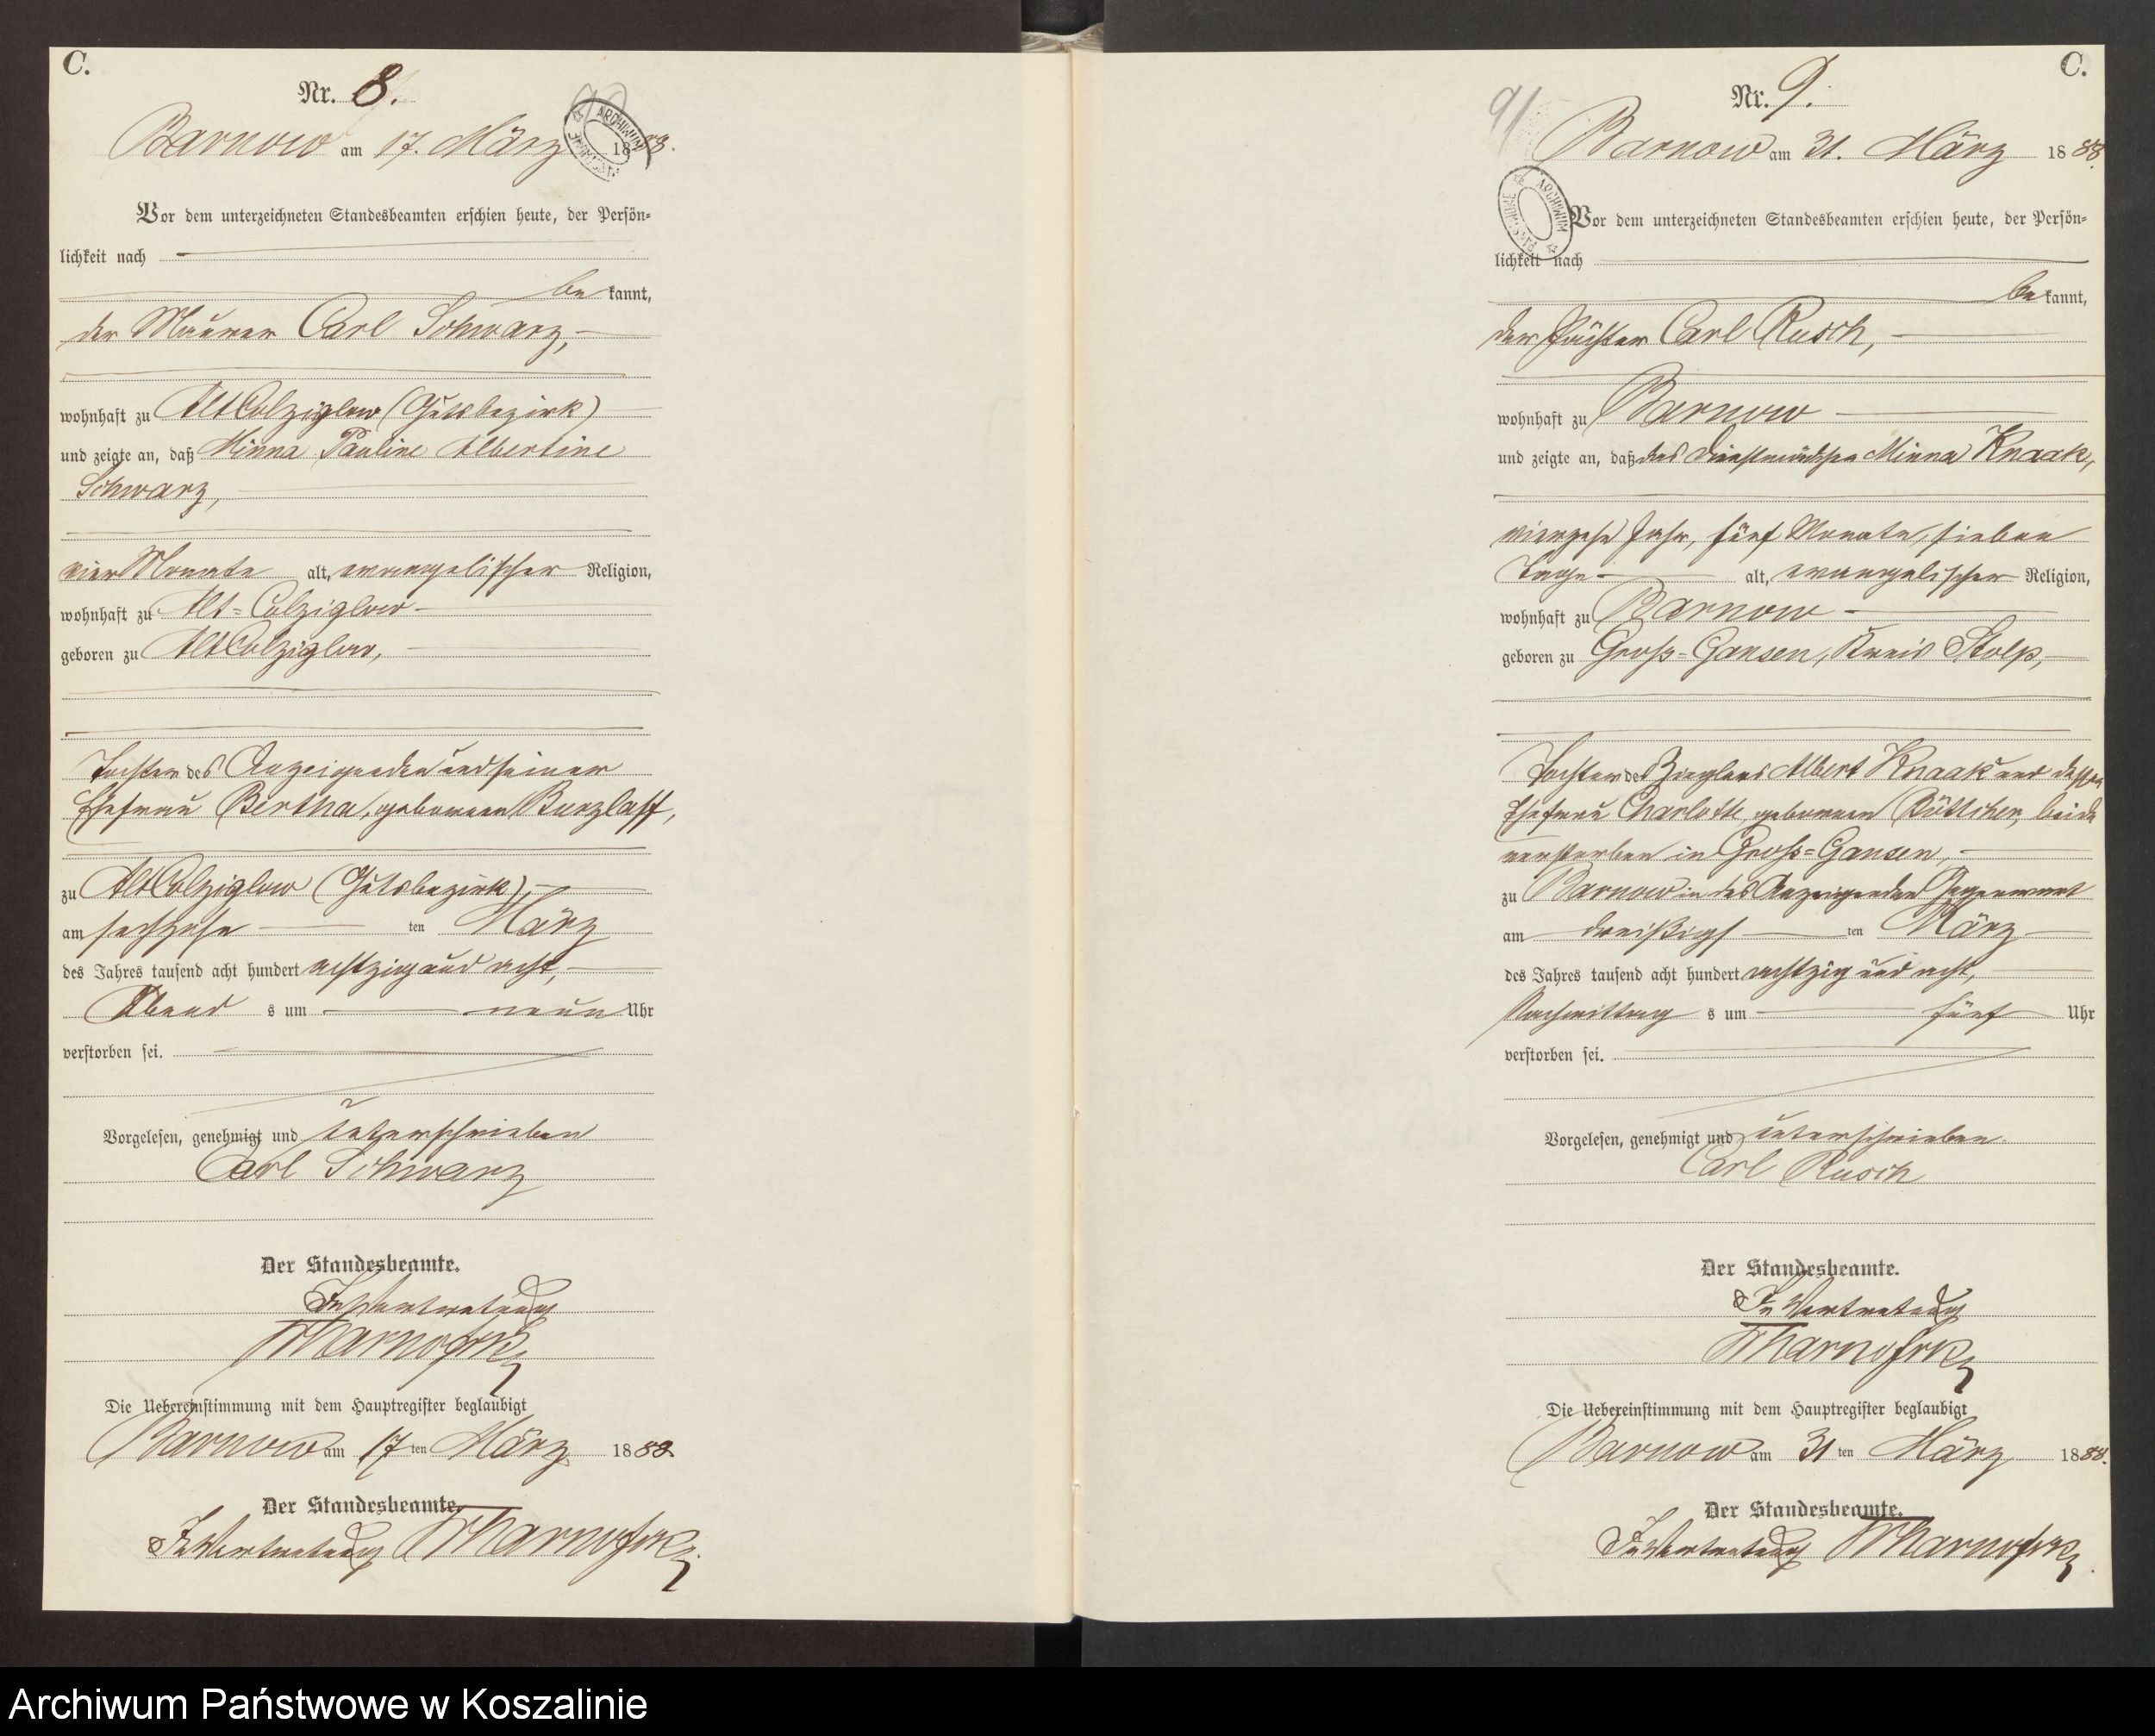 C.
Nr. 8.
Barnow am 17. März 1888.
Vor dem unterzeichneten Standesbeamten erschien heute, der Persön-
lichkeit nach
be kannt,
der Maurer Carl Schwarz,
wohnhaft zu Alt Colziglow (Gutsbezirk)
und zeigte an, daß Minna Pauline Albertine
Schwarz,
vier Monate alt, evangelischer Religion,
wohnhaft zu Alt-Colziglow
geboren zu Alt Colziglow,
Tochter des Anzeigenden und seiner
Ehefrau Bertha, geborenen Burzlaff,
zu Alt Colziglow (Gutsbezirk),
am sechzehn ten März
des Jahres tausend acht hundert achtzig und acht,
Abend s um neun Uhr
verstorben sei.
Vorgelesen, genehmigt und unterschrieben
Carl Schwarz
Der Standesbeamte.
In Vertretung
Die Uebereinstimmung mit dem Hauptregister beglaubigt
Barnow am 17 ten März 1888
Der Standesbeamte.
In Vertretung
C.
91
Nr. 9.
Barnow am 31. März 1888.
ARCHIWUM
Vor dem unterzeichneten Standesbeamten erschien heute, der Persön-
lichkeit nach
be kannt,
der Pächter Carl Rusch,
wohnhaft zu Barnow
und zeigte an, daß das Dienstmädchen Minna Knaak,
vierzehn Jahr, fünf Monate, sieben
Tage alt, evangelischer Religion,
wohnhaft zu Barnow
geboren zu Groß-Gansen, Kreis Stolp,
Tochter des Zieglers Albert Knaak und dessen
Ehefrau Charlotte, geborenen Böttcher, beide
verstorben in Groß-Gansen,
zu Barnow in des Anzeigenden Gegenwart
am dreißigs ten März
des Jahres tausend acht hundert achtzig und acht,
Nachmittag s um fünf Uhr
verstorben sei.
Vorgelesen, genehmigt und unterschrieben.
Carl Rusch
Der Standesbeamte.
In Vertretung
Die Uebereinstimmung mit dem Hauptregister beglaubigt
Barnow am 31 ten März 1888.
Der Standesbeamte.
In Vertretung
Archiwum Państwowe w Koszalinie